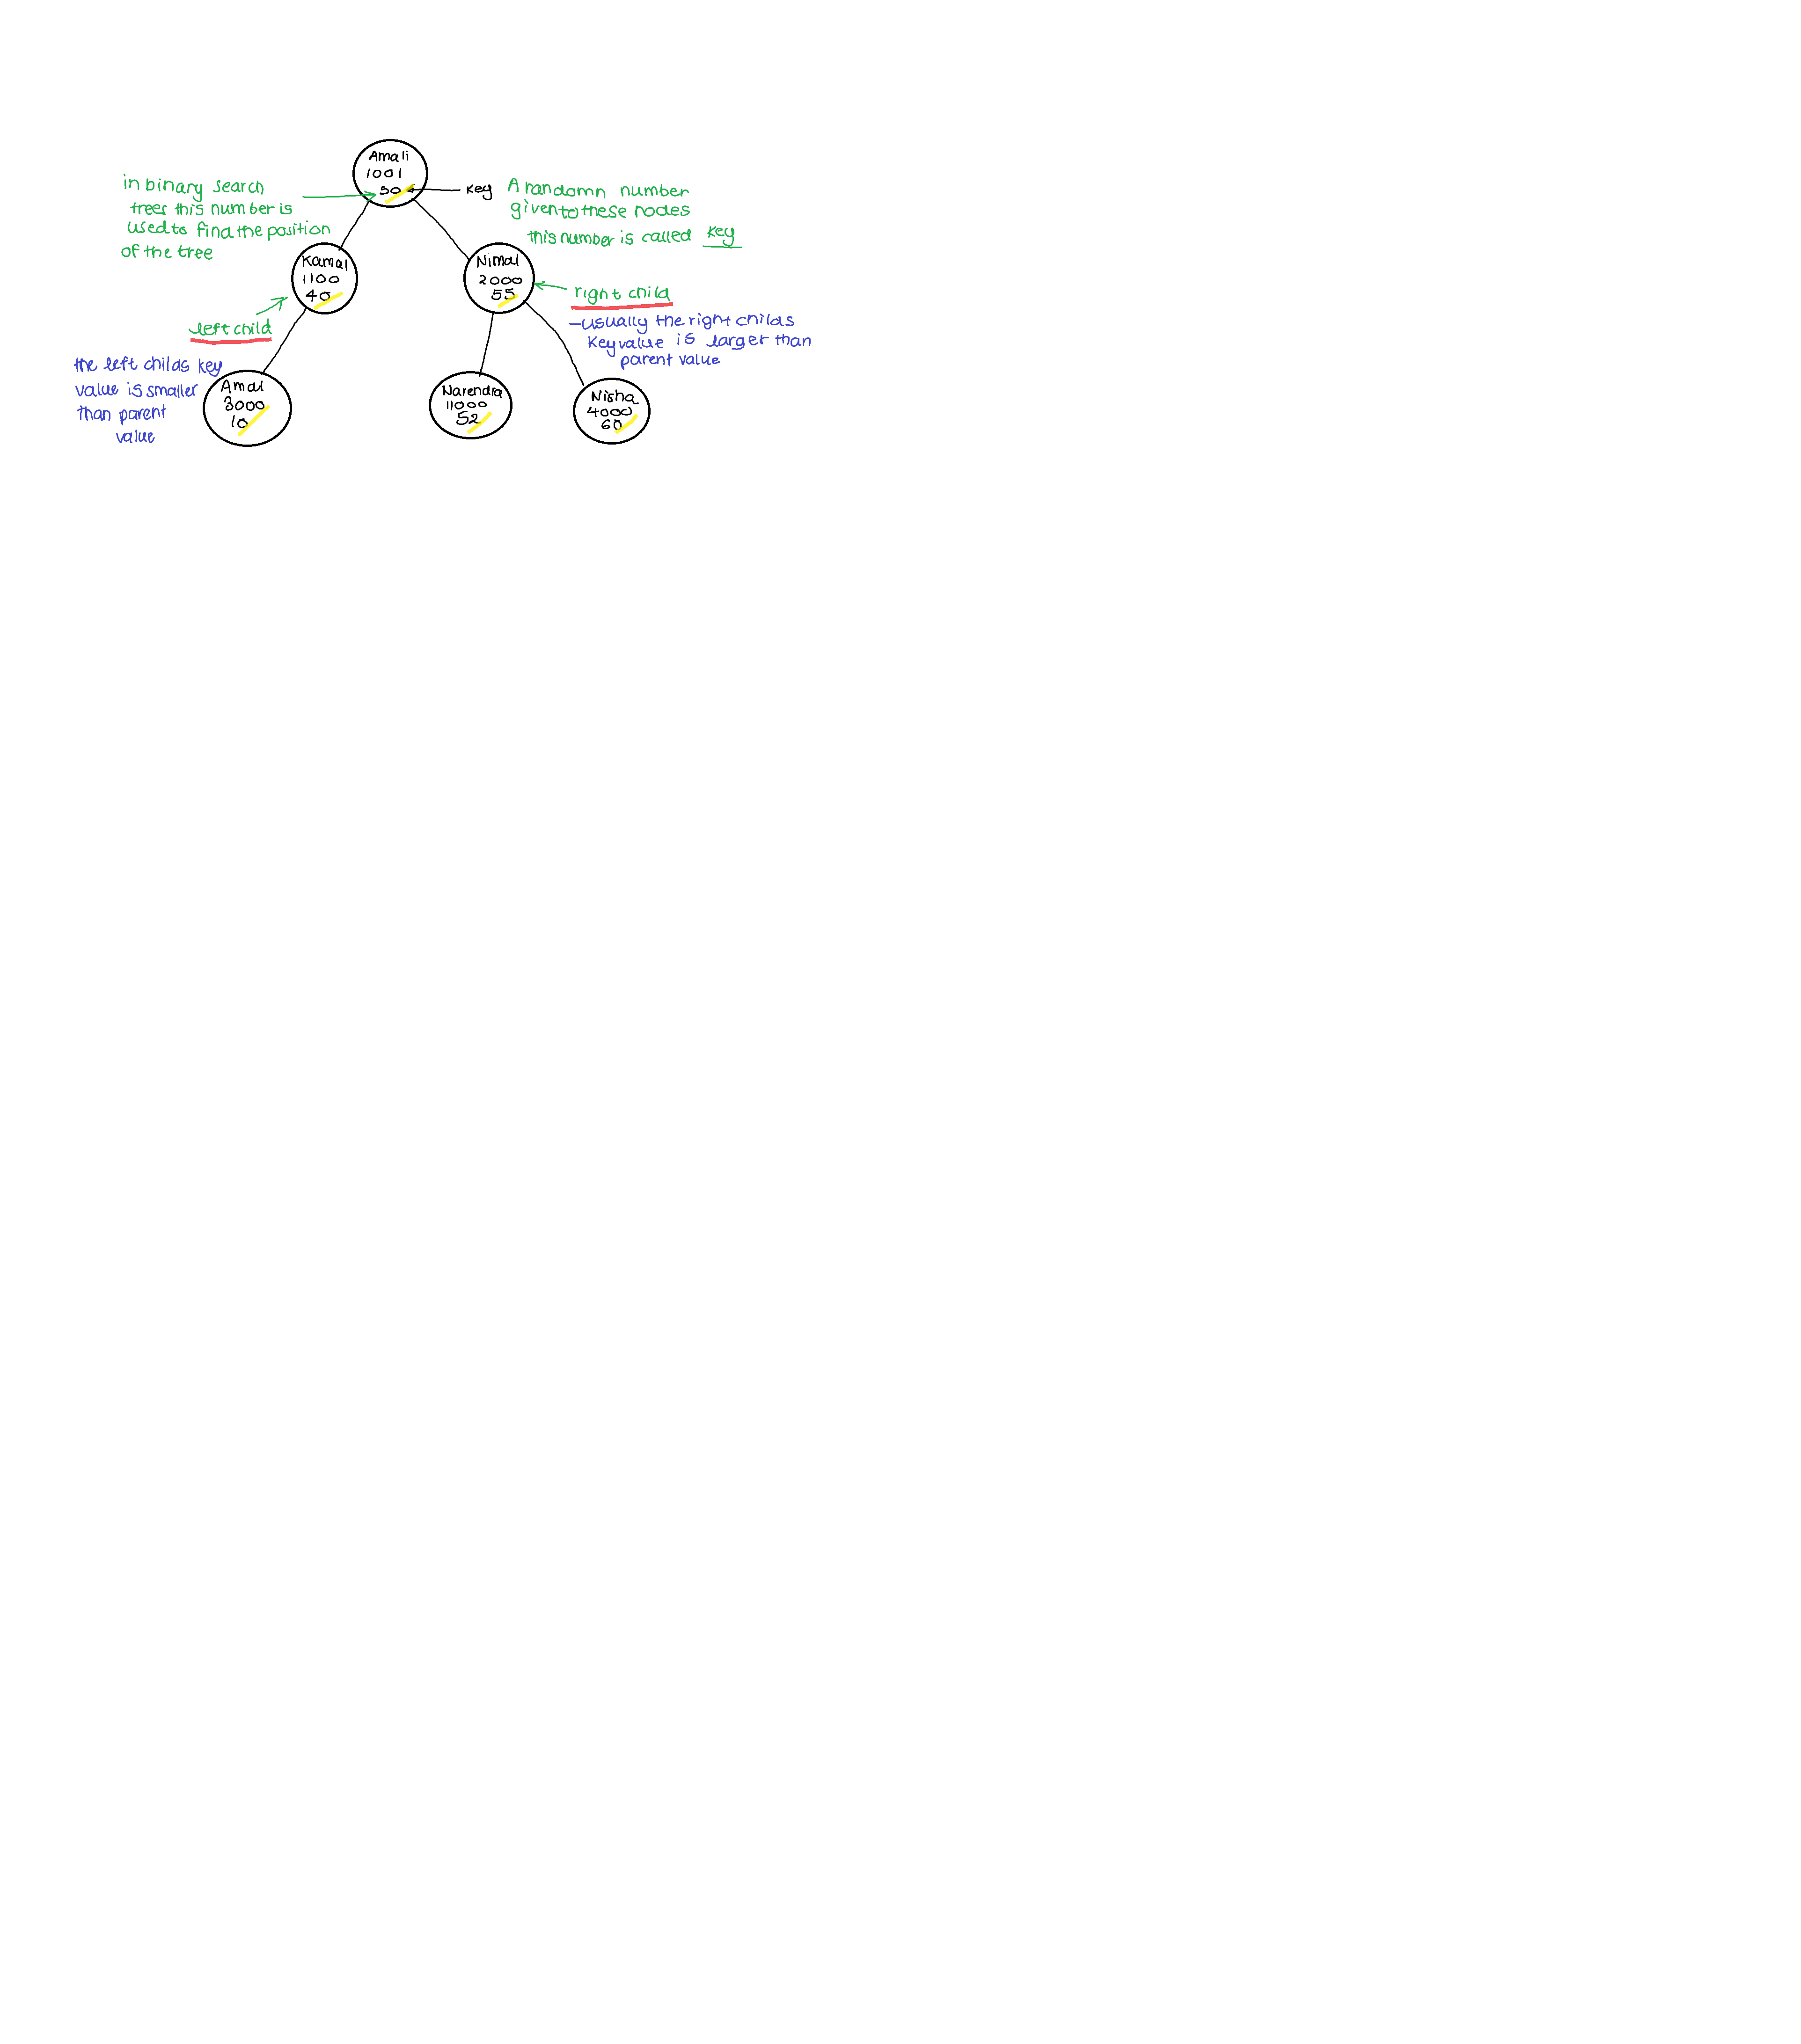 Amali
1001
50
key
in binary search
trees this number is
used to find the position
of the tree
A randomn number
given to these nodes
this number is called key
Kamal
1100
40
Nimal
2000
55
right child
- usually the right childs
key value is larger than
parent value
left child
the left childs key
value is smaller
than parent
value
Amal
3000
10
Narendra
11000
52
Nisha
4000
60